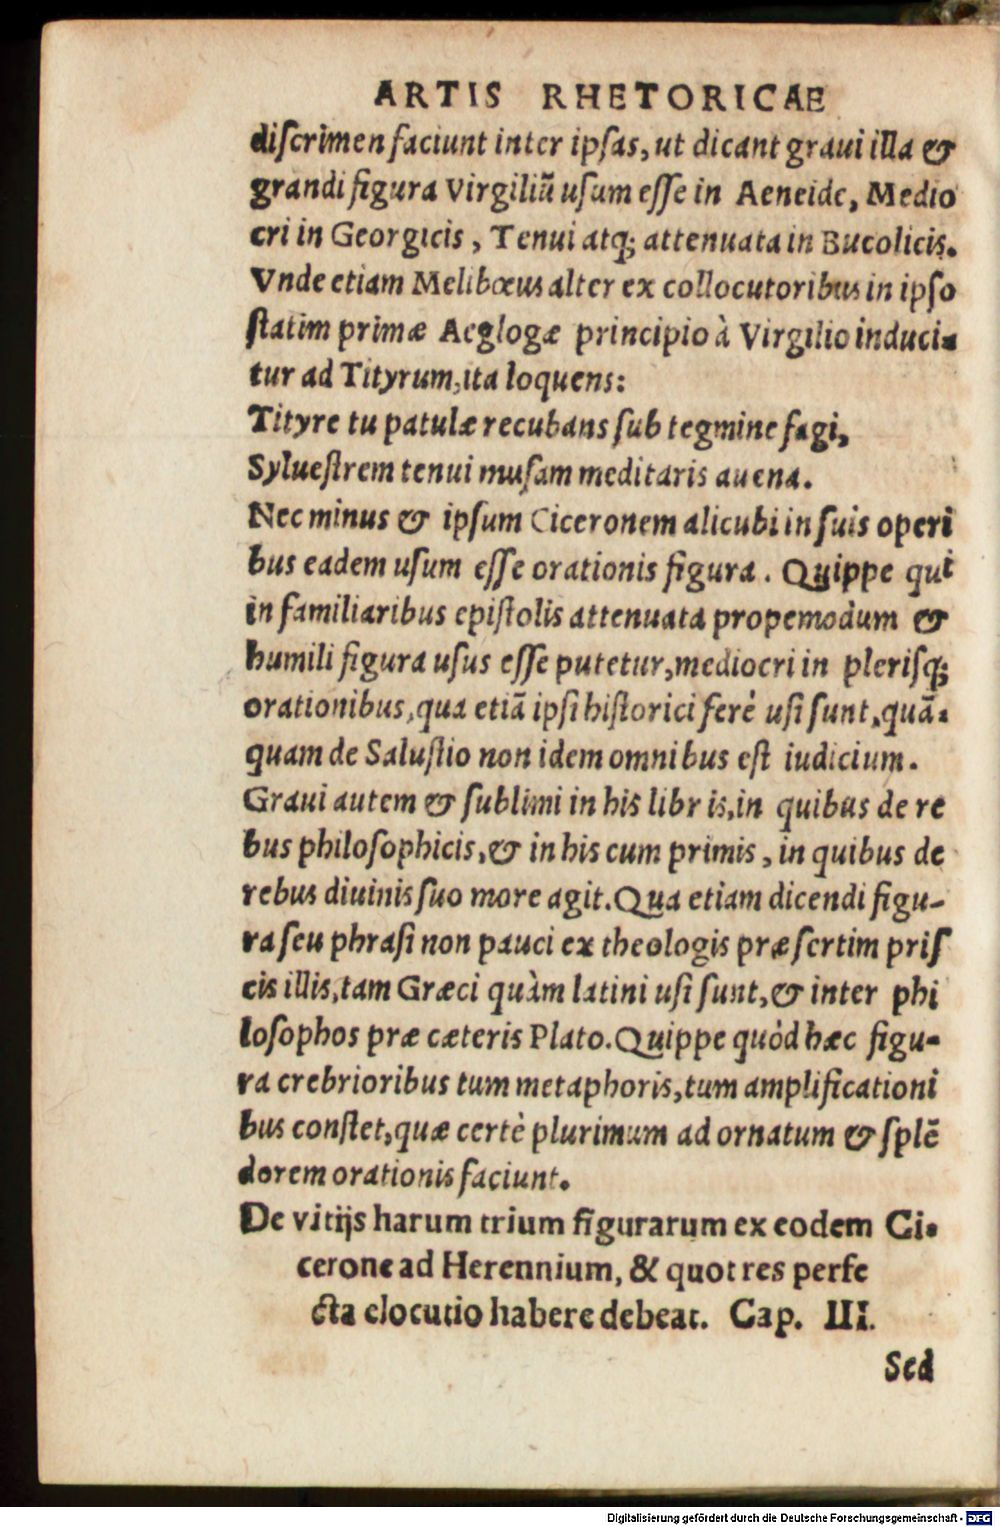 ARTIS RHETORICAE
diſcrimen faciunt inter ipſas, ut dicant graui illa &
grandi figura Virgiliũ uſum eſſe in Aeneide, Medio
cri in Georgicis, Tenui atq; attenuata in Bucolicis.
Vnde etiam Melibœus alter ex collocutoribus in ipſo
ſtatim primæ Aeglogæ principio à Virgilio induci-
tur ad Tityrum, ita loquens:
Tityre tu patulæ recubans ſub tegmine fagi,
Sylueſtrem tenui muſam meditaris auena.
Nec minus & ipſum Ciceronem alicubi in ſuis operi
bus eadem uſum eſſe orationis figura. Quippe qui
in familiaribus epiſtolis attenuata propemodum &
humili figura uſus eſſe putetur, mediocri in pleriſq;
orationibus, qua etiã ipſi hiſtorici ferè uſi ſunt, quã-
quam de Saluſtio non idem omnibus eſt iudicium.
Graui autem & ſublimi in his libr is, in quibus de re
bus philoſophicis, & in his cum primis, in quibus de
rebus diuinis ſuo more agit. Qua etiam dicendi figu-
ra ſeu phraſi non pauci ex theologis præſertim priſ
cis illis, tam Græci quàm latini uſi ſunt, & inter phi
loſophos præ cæteris Plato. Quippe quòd hæc figu-
ra crebrioribus tum metaphoris, tum amplificationi
bus conſtet, quæ certè plurimum ad ornatum & ſplẽ
dorem orationis faciunt.
De vitijs harum trium figurarum ex eodem Ci-
cerone ad Herennium, & quot res perfe
cta elocutio habere debeat. Cap. III.
Sed
Digitalisierung gefördert durch die Deutsche Forschungsgemeinschaft - DFG